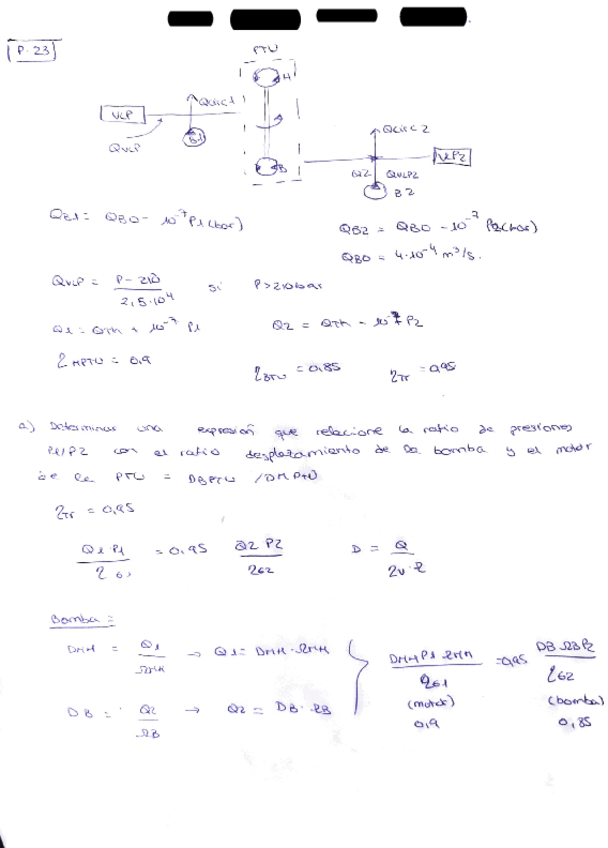 P-23
PTU
M
VLP
Qcirc1
QVLP
B1
B
Qcirc2
VLP2
Q2
QVLP2
B2
QB1 = QBO - 10^-7 P1 (bar)
QB2 = QBO - 10^-7 P2 (bar)
QBO = 4·10^-4 m³/s.
QVLP = (P - 210) / (2,5·10^4) si P>210bar
Q1 = QTH + 10^-7 P1
Q2 = QTH - 10^-7 P2
ηMPTU = 0,9
ηBTU = 0,85
ηTr = 0,95
a) Determinar una expresión que relacione la ratio de presiones
P1/P2 con el ratio desplazamiento de la bomba y el motor
de la PTU = DBPTU / DMPTU
ηTr = 0,95
(Q1·P1) / = 0,95 (Q2·P2) / η62
D = Q /
Bomba =
DMM = Q1 / ΩMM → Q1 = DMM·ΩMM
DB = Q2 / ΩB → Q2 = DB·ΩB
(DMM P1·ΩMM) / η61 = 0,95 (DB·ΩB P2) / η62
(motor) (bomba)
0,9 0,85